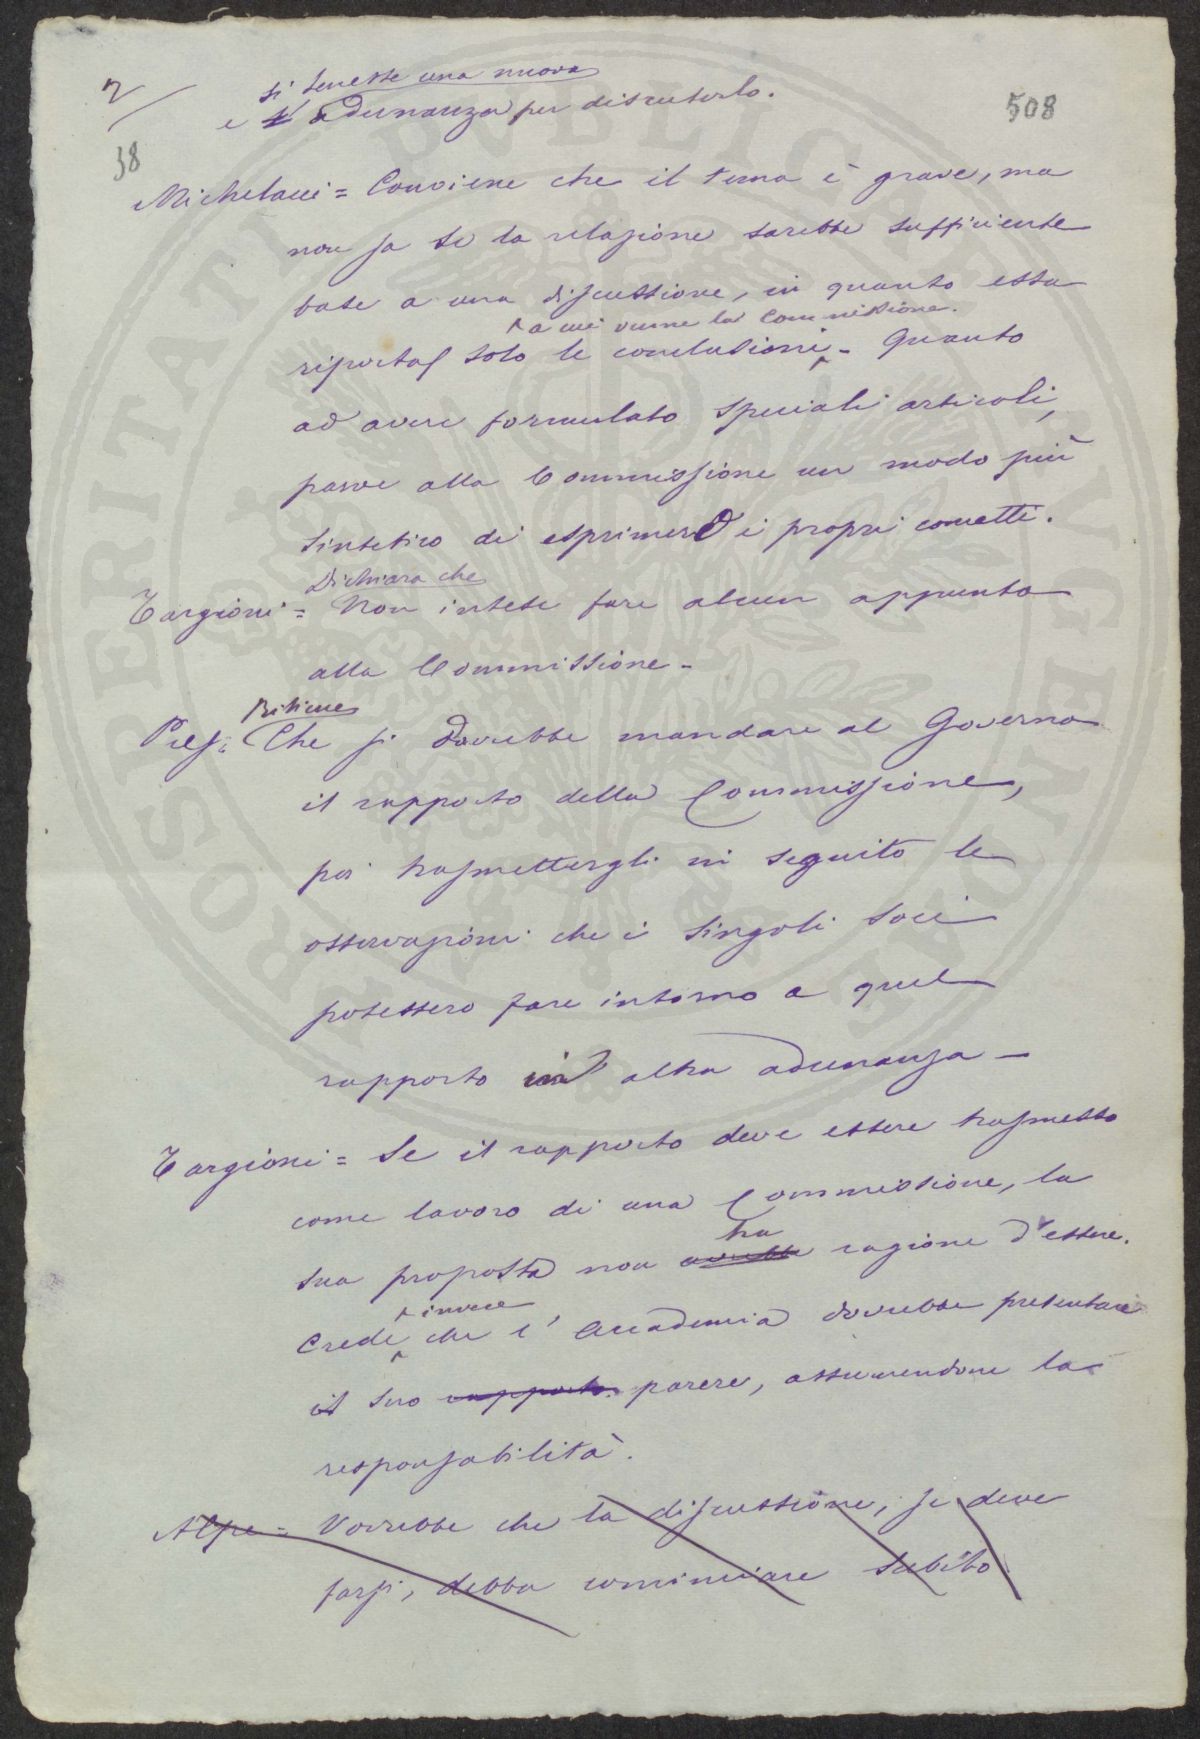 2
508
38
si tenesse una nuova
e adunanza per discuterlo.
Michelacci = Conviene che il tema è grave, ma
non sa se la relazione sarebbe sufficiente
base a una discussione, in quanto essa
a cui venne la Commissione.
riporta solo le conclusioni - Quanto
ad avere formulato speciali articoli,
parve alla Commissione un modo più
sintetico di esprimere i propri concetti.
Dichiara che
Targioni = Non intese fare alcun appunto
alla Commissione -
Ritiene
Pres. Che si dovrebbe mandare al Governo
il rapporto della Commissione,
poi trasmettergli in seguito le
osservazioni che i singoli soci
potessero fare intorno a quel
rapporto in altra adunanza -
Targioni = Se il rapporto deve essere trasmesso
come lavoro di una Commissione, la
ha
sua proposta non avrebbe ragione d'essere.
invece
Crede che l'Accademia dovrebbe presentare
il suo rapporto parere, assumendone la
responsabilità.
Alpe = Vorrebbe che la discussione, se deve
farsi, debba cominciare subito
PROSPERITATI PUBLICAE AUGENDAE